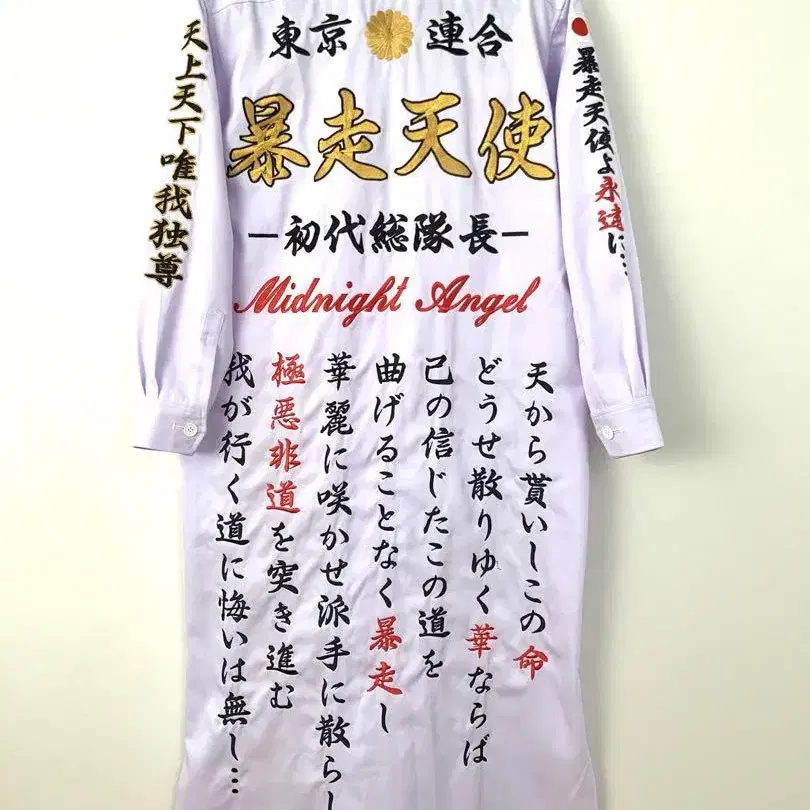 東京 連合
暴走天使
ー初代総隊長ー
Midnight Angel
天上天下唯我独尊
暴走天使よ永遠に…
天から貰いしこの命
どうせ散りゆく華ならば
己の信じたこの道を
曲げることなく暴走し
華麗に咲かせ派手に散らし
極悪非道を突き進む
我が行く道に悔いは無し…